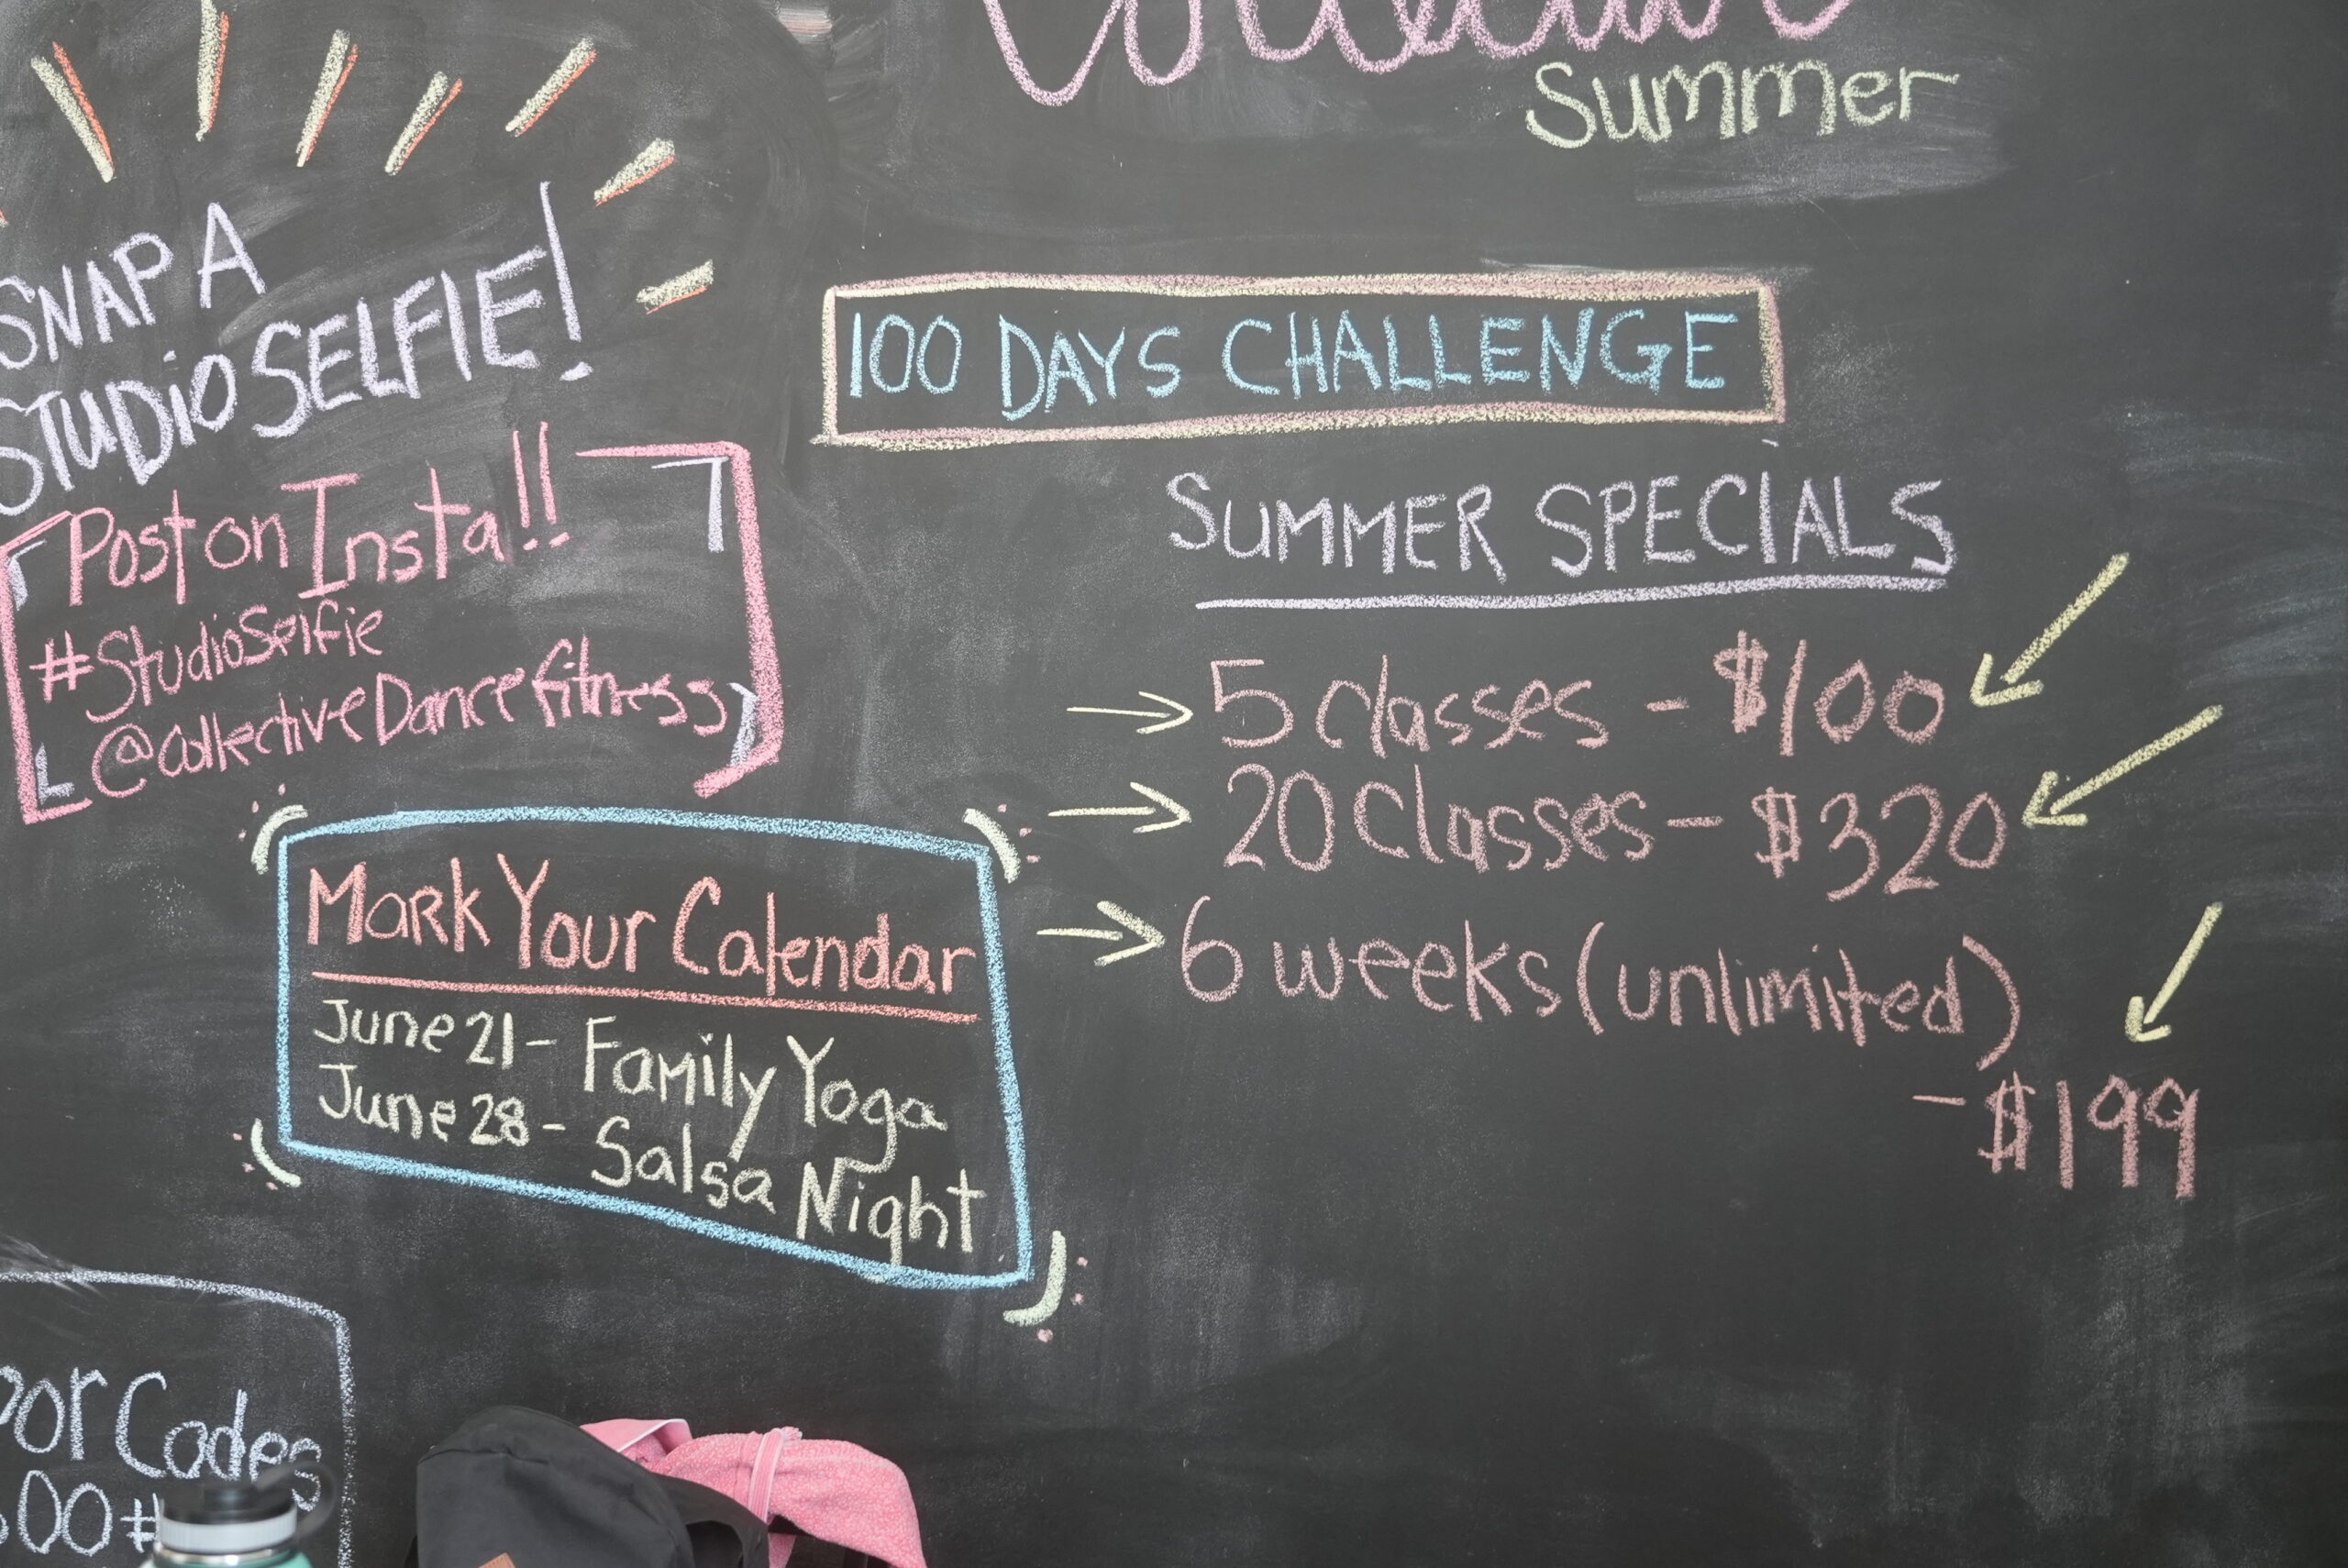 Collective
Summer
SNAP A
STUDIO SELFIE!
Post on Insta!!
#StudioSelfie
@CollectiveDancefitness
100 DAYS CHALLENGE
SUMMER SPECIALS
5 classes - $100
20 Classes - $320
6 weeks (unlimited)
- $199
Mark Your Calendar
June 21 - Family Yoga
June 28 - Salsa Night
Codes